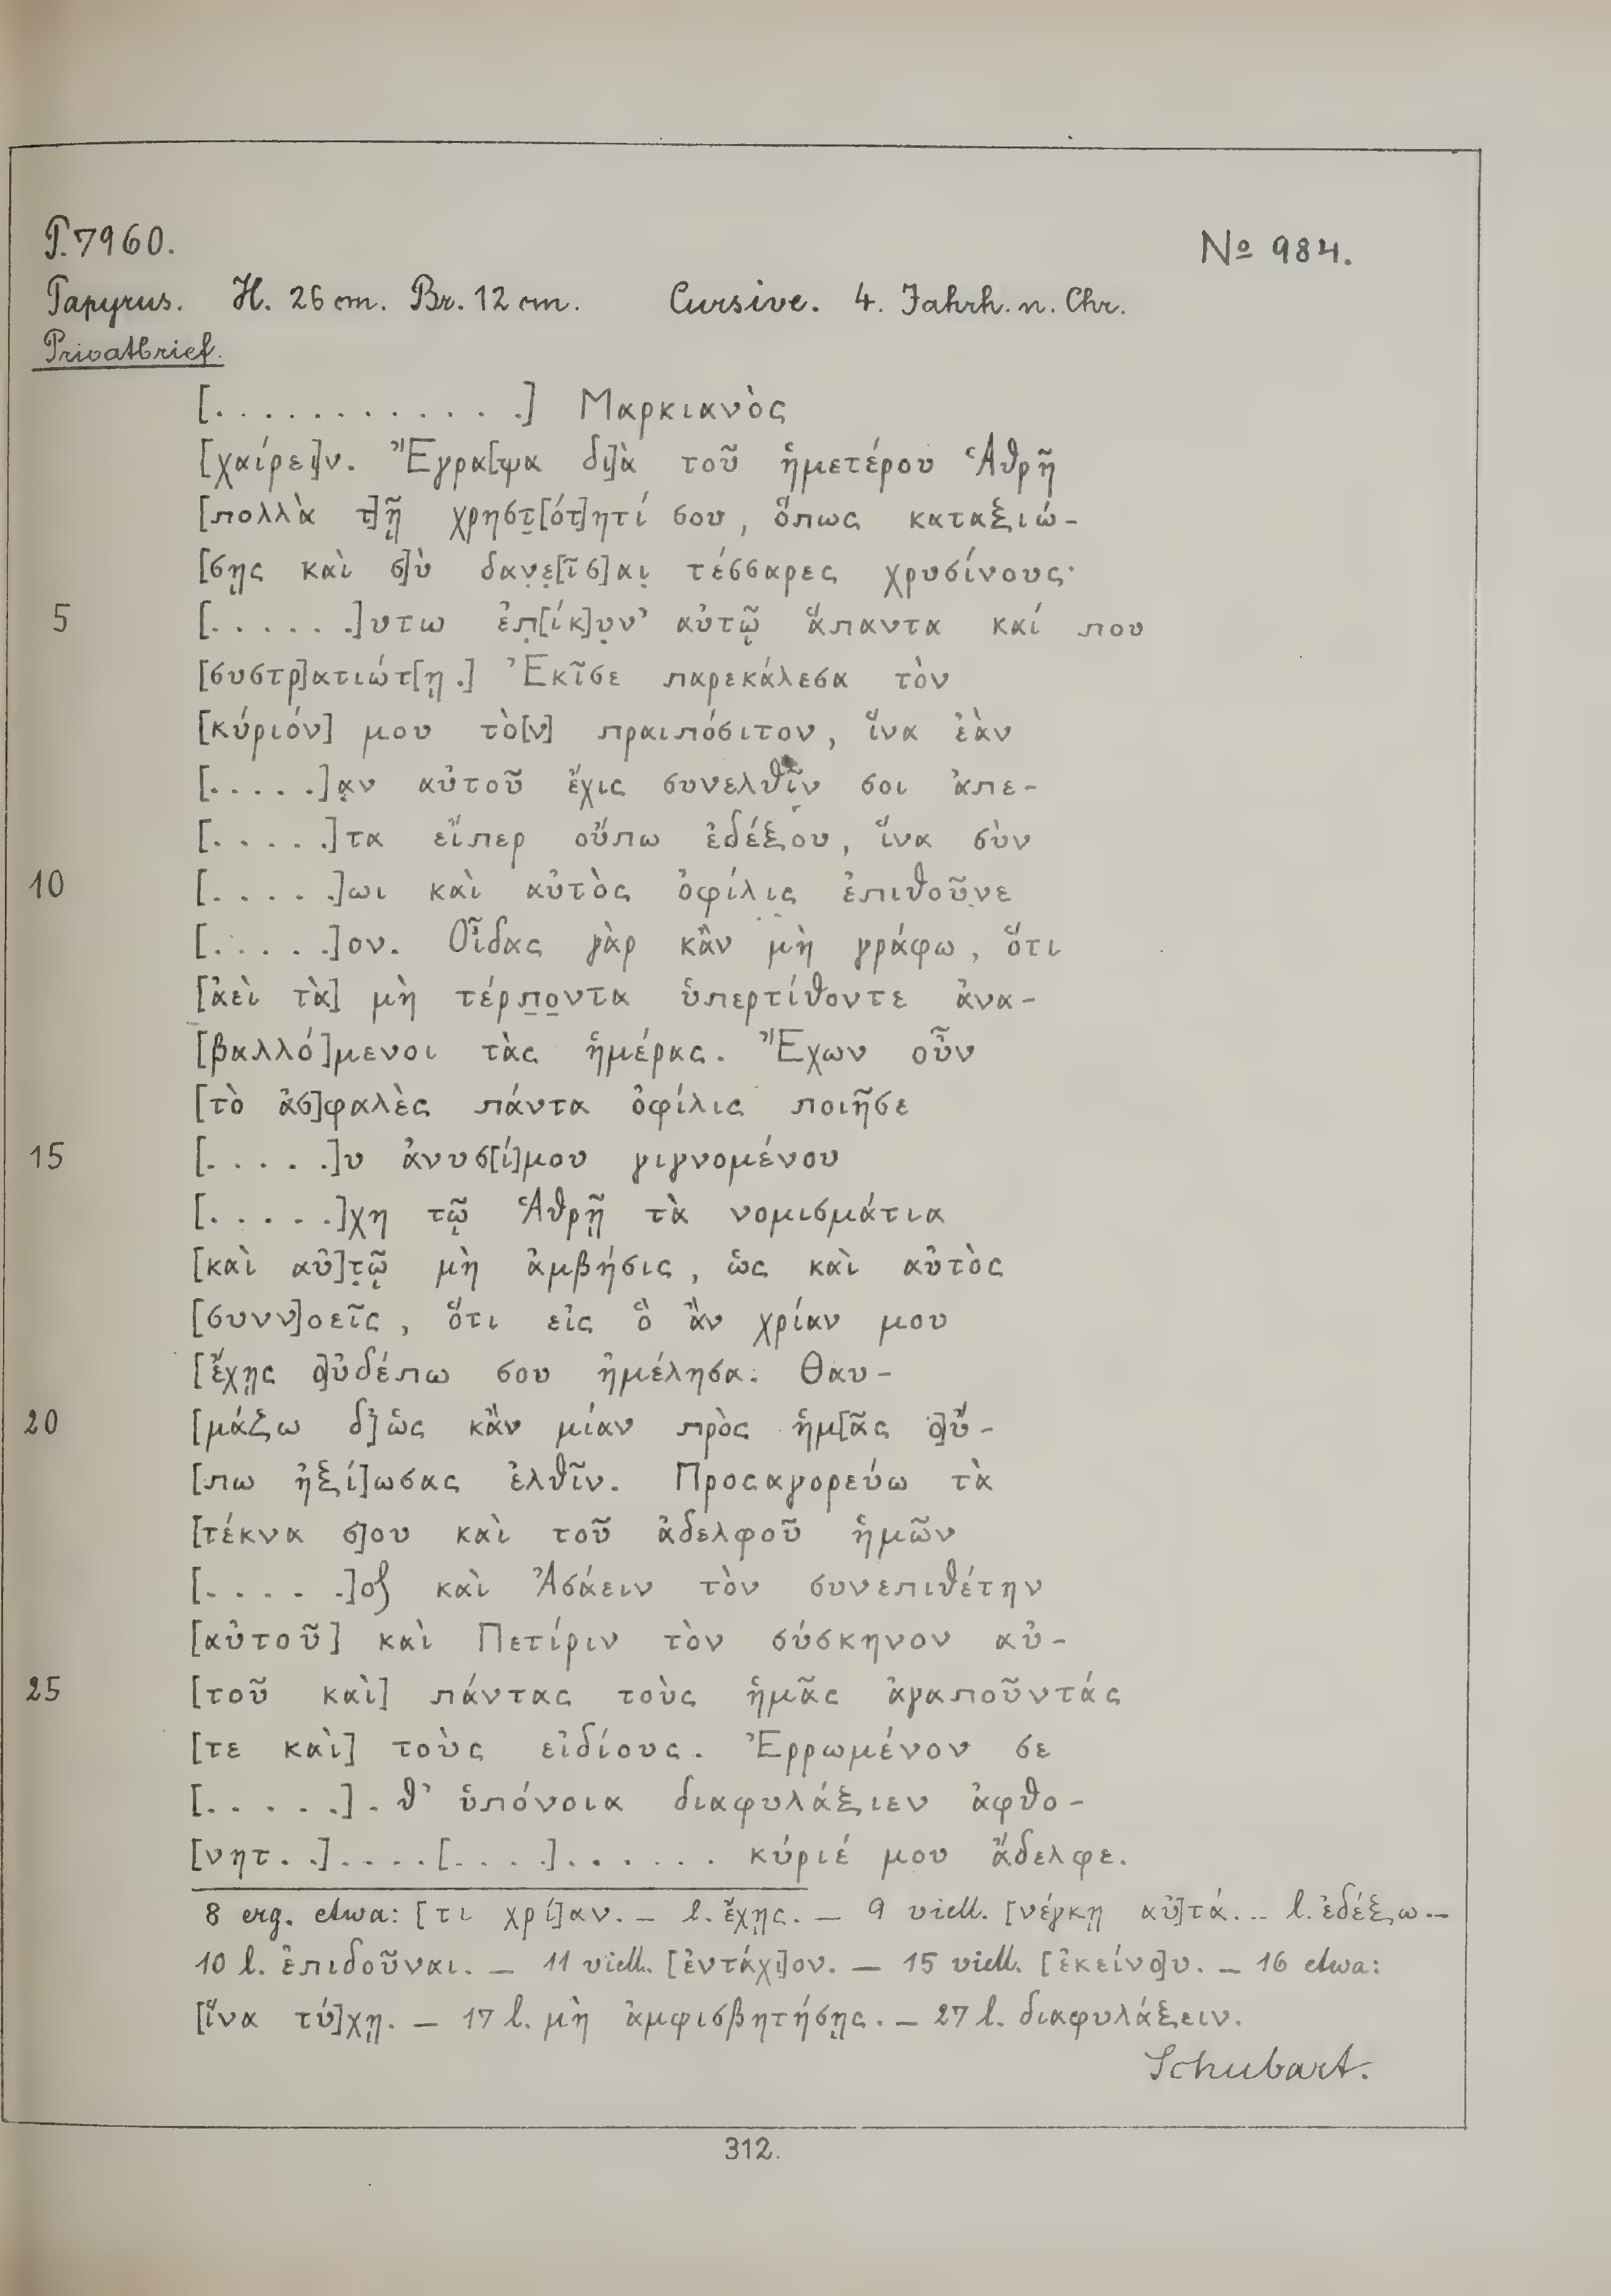 P. 7960. No 984.
Papyrus. H. 26 cm. Br. 12 cm. Cursive. 4. Jahrh. n. Chr.
Privatbrief.
[. . . . . . . . . . . . .] Μαρκιανὸς
[χαίρει]ν. Ἔγρα[ψα δι]ὰ τοῦ ἡμετέρου Ἁθρῆ
[πολλὰ τ]ῇ χρηστ̣[ότ]ητί σου, ὅπως καταξιώ-
[σῃς καὶ σ]ὺ δαν̣ε̣[ῖσ]αι̣ τέσσαρες χρυσίνους·
5 [. . . . . .]υτω ἐπ̣[ίκ]υ̣ν’ αὐτῷ ἅπαντα καί που
[συστρ]ατιώτ[ῃ .] Ἐκῖσε παρεκάλεσα τὸν
[κύριόν] μου τὸ[ν] πραιπόσιτον, ἵνα ἐὰν
[. . . . .]α̣ν αὐτοῦ ἔχις συνελθῖν σοι ἀπε-
[. . . . .]τα εἴπερ οὔπω ἐδέξου, ἵνα σὺν
10 [. . . . .]ωι καὶ αὐτὸς ὀφίλις ἐπιθοῦνε
[. . . . .]ον. Οἶδας γὰρ κἂν μὴ γράφω, ὅτι
[ἀεὶ τὰ] μὴ τέρπ̣ο̣ντα ὑπερτίθοντε ἀνα-
[βαλλό]μενοι τὰς ἡμέρας. Ἔχων οὖν
[τὸ ἀσ]φαλὲς πάντα ὀφίλις ποιῆσε
15 [. . . . .]υ ἀνυσ[ί]μου γιγνομένου
[. . . . .]χη τῷ Ἁθρῇ τὰ νομισμάτια
[καὶ αὐ]τ̣ῷ μὴ ἀμβήσις, ὡς καὶ αὐτὸς
[συνν]οεῖς, ὅτι εἰς ὃ ἂν χρίαν μου
[ἔχῃς ο]ὐδέπω σου ἠμέλησα. Θαυ-
20 [μάζω δ] ὡς κἂν μίαν πρὸς ἡμ[ᾶς ο]ὔ-
[πω ἠξί]ωσας ἐλθῖν. Προσαγορεύω τὰ
[τέκνα σ]ου καὶ τοῦ ἀδελφοῦ ἡμῶν
[. . . . .]ος καὶ Ἀσάειν τὸν συνεπιθέτην
[αὐτοῦ] καὶ Πετίριν τὸν σύσκηνον αὐ-
25 [τοῦ καὶ] πάντας τοὺς ἡμᾶς ἀγαποῦντάς
[τε καὶ] τοὺς εἰδίους. Ἐρρωμένον σε
[. . . . .] . θ’ ὑπόνοια διαφυλάξιεν ἀφθο-
[νητ . .] . . . . [. . . .] . . . . . . κύριέ μου ἄδελφε.
8 erg. etwa: [τι χρί]αν. – l. ἔχῃς. – 9 viell. [νέγκῃ αὐ]τά. – l. ἐδέξω –
10 l. ἐπιδοῦναι. – 11 viell. [ἐντάχι]ον. – 15 viell. [ἐκείνο]υ. – 16 etwa:
[ἵνα τύ]χῃ. – 17 l. μὴ ἀμφισβητήσῃς. – 27 l. διαφυλάξειν.
Schubart.
312.